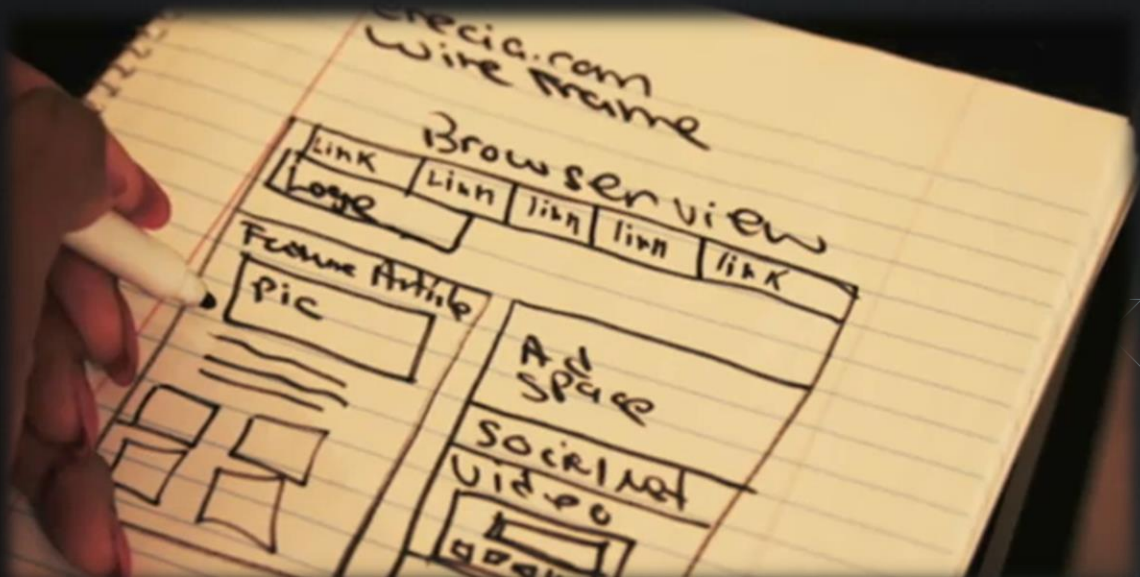 crecia.com
Wire Frame
Browser view
Link Link link link link
Loge
Feature Article
Pic
Ad
Space
Social net
Video